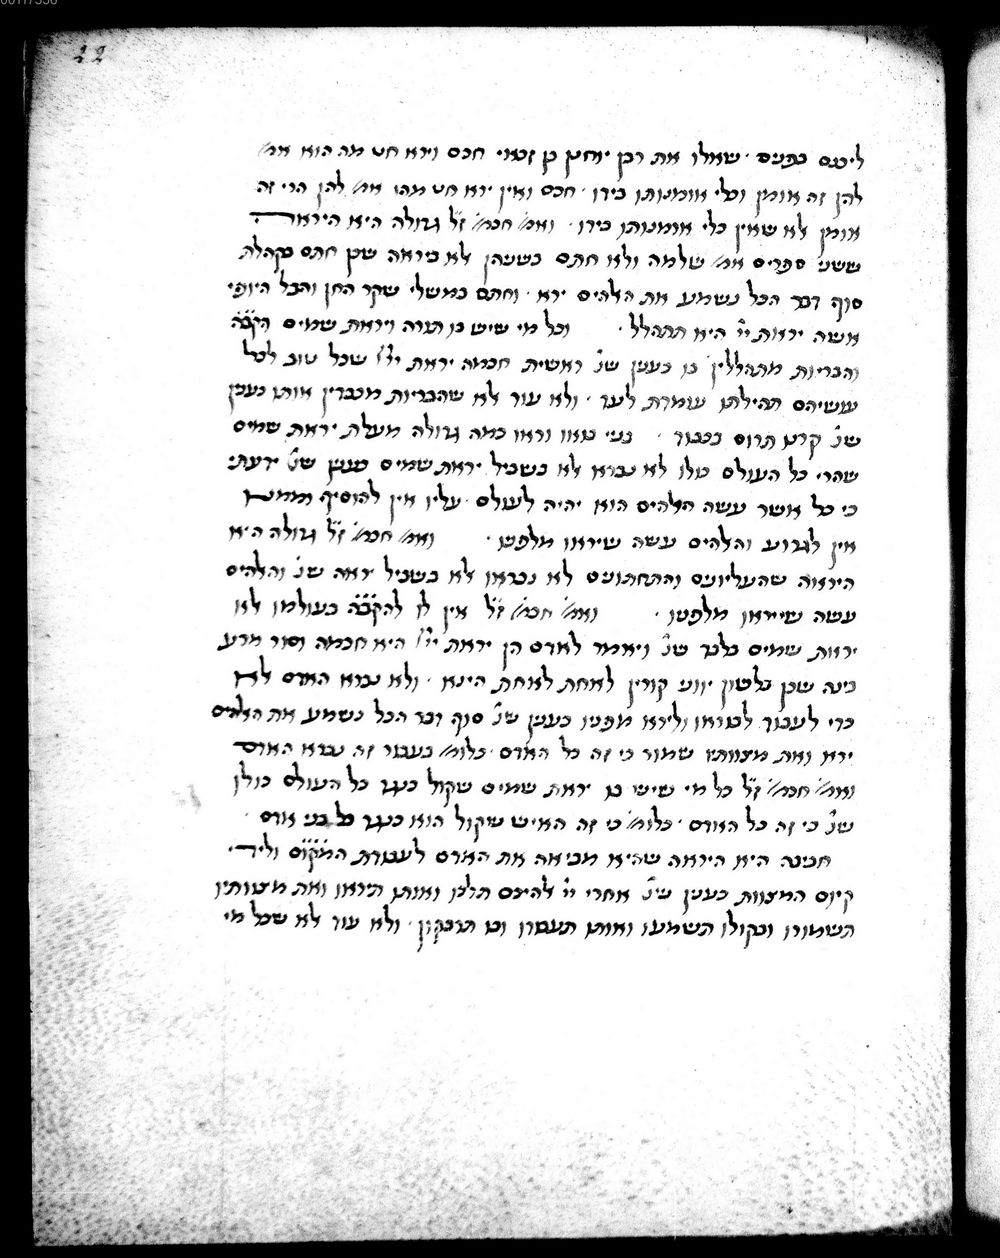 22
ליכנס בפנים · שאלו את רבן יוחנן בן זכאי חכם וירא חט מה הוא אמ'
להן זה אומן וכלי אומנותו בידו · חכם ואין ירא חט מהו אמ' להן הרי זה
אומן לא שאין כלי אומנותו בידו · ואמ' חכמ' ז"ל גדולה היא היראה
ששני ספרים אמ' שלמה ולא חתם בשניהן לא ביראה שכן חתם בקהלת
סוף דבר הכל נשמע את האלהים ירא · וחתם במשלי שקר החן והבל היופי
אשה יראת יי' היא תתהלל · וכל מי שיש בו תורה ויראת שמים הקב"ה
והבריות מתהללין בו כענין שנ' ראשית חכמה יראת יי' שכל טוב לכל
עושיהם תהילתו עומדת לעד · ולא עוד לא שהבריות מכבדין אותו כענין
שנ' קרנו תרום בכבוד · בני בואו וראו כמה גדולה מעלת יראת שמים
שהרי כל העולם כולו לא נברא לא בשביל יראת שמים כענין שנ' ידעתי
כי כל אשר עשה האלהים הוא יהיה לעולם · עליו אין להוסיף וממנו
אין לגרוע והאלהים עשה שיראו מלפניו · ואמ' חכמ' ז"ל גדולה היא
היראה שהעליונים והתחתונים לא נבראו לא בשביל יראה שנ' והאלהים
עשה שייראו מלפניו · ואמ' חכמ' ז"ל אין לו להקב"ה בעולמו לא
יראת שמים בלבד שנ' ויאמר לאדם הן יראת יי' היא חכמה וסור מרע
בינה שכן בלשון יווני קורין לאחת לאחת הינא · ולא נברא האדם לא
כדי לעבוד לבוראו ולירא מפניו כענין שנ' סוף דבר הכל נשמע את האלהים
ירא ואת מצוותיו שמור כי זה כל האדם · כלומ' בעבור זה נברא האדם
ואמ' חכמ' ז"ל כל מי שיש בו יראת שמים שקול כנגד כל העולם כולו
שנ' כי זה כל האדם · כלומ' כי זה האיש שקול הוא כנגד כל בני אדם ·
חביבה היא היראה שהיא מביאה את האדם לעבודת המקום ולידי
קיום המצוות כענין שנ' אחרי יי' להיכם תלכו ואותו תיראו ואת מצוותיו
תשמורו ובקולו תשמעו ואותו תעבדו ובו תדבקון · ולא עוד לא שכל מי